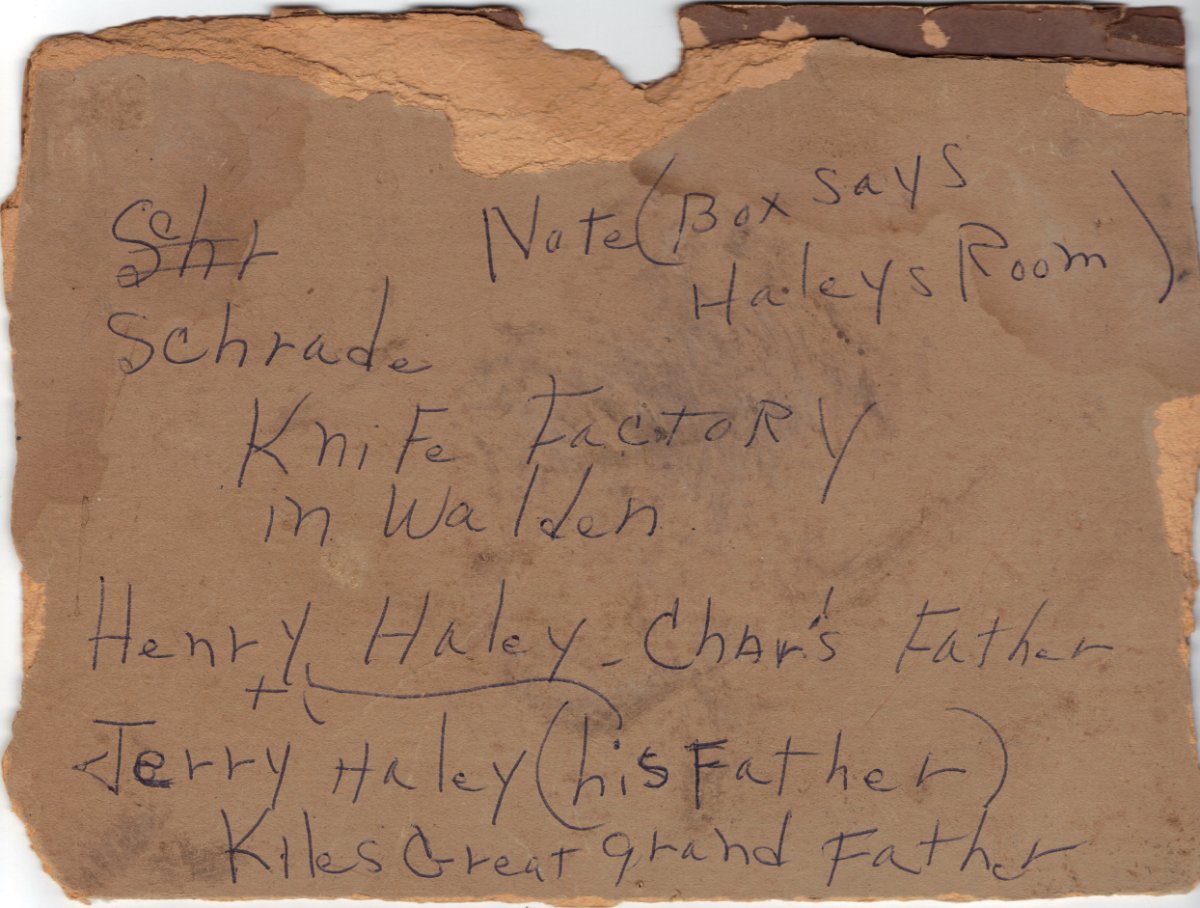 Schr
Note (Box says
Haleys Room)
Schrade
Knife Factory
in Walden
Henry Haley - Char's Father
+
Jerry Haley (his Father)
Kiles Great grand Father